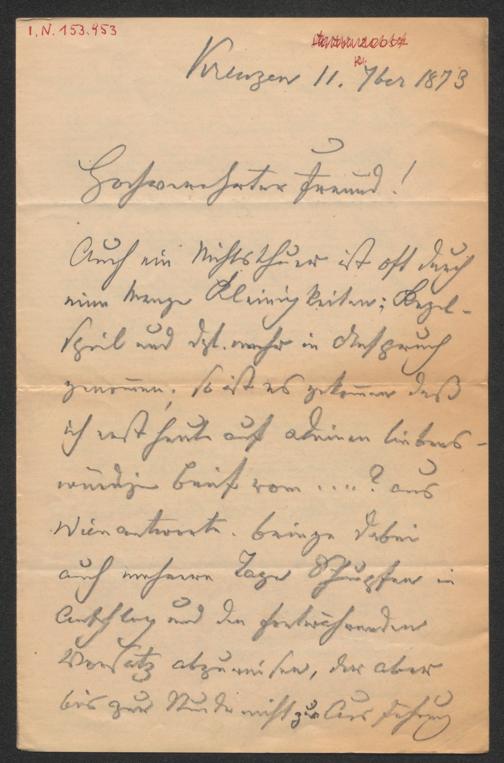 I.N. 153.453
Kreuzen 11. 7ber 1873
Hochverehrter Freund!
Auch ein Nichtsthuer ist oft durch
eine Menge Kleinigkeiten; Kegel-
spiel und dgl. mehr in Anspruch
genommen; so ist es gekommen daß
ich erst heute auf deinen liebens-
würdigen Brief vom ....? aus
Wien antworte. bringe dabei
auch mehrere Tage Schnupfen in
Anschlag und den fortwährenden
Vorsatz abzureisen, der aber
bis zur Stunde nicht zur Ausführung